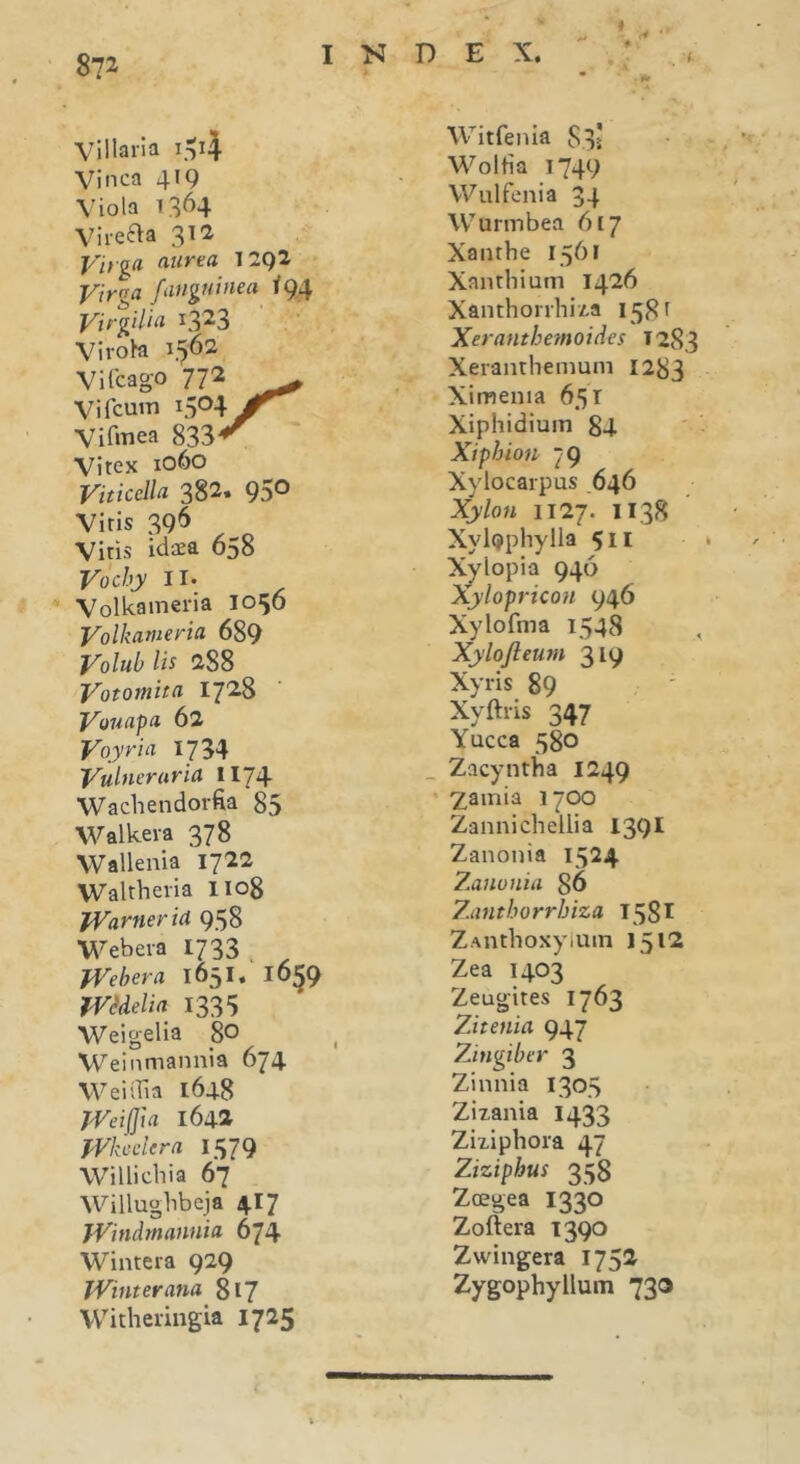 872
INDEX.
Villaria 1514
Vinca 419
Viola 1364
Virecta 312
Virga aurea 1292
Virga ſanguinea 194
Virgilia 1323
Virola 1562
Viſcago 772
Viſcum 1504
Viſmea 833
Vitex 1060
Viticella 382. 950
Vitis 396
Vitis idæa 658
Vochy 11.
Volkameria 1056
Volkameria 689
Volub lis 288
Votomita 1728
Vouapa 62
Voyria 1734
Vulneraria 1174
Wachendorfia 85
Walkera 378
Wallenia 1722
Waltheria 1108
Warneria 958
Webera 1733
Webera 1651. 1659
Wedelia 1335
Weigelia 80
Weinmannia 674
Weiſſia 1648
Weiſſia 1642
Wkeelera 1579
Willichia 67
Willughbeja 417
Windmannia 674
Wintera 929
Winterana 817
Witheringia 1725
Witſenia 83
Wolfia 1749
Wulfenia 34
Wurmbea 617
Xanthe 1561
Xanthium 1426
Xanthorrhiza 1581
Xeranthemoides 1283
Xeranthemum 1283
Ximenia 651
Xiphidium 84
Xiphion 79
Xylocarpus 646
Xylon 1127. 1138
Xylophylla 511
Xylopia 946
Xylopricon 946
Xyloſma 1548
Xyloſteum 319
Xyris 89
Xyſtris 347
Yucca 580
Zacyntha 1249
Zamia 1700
Zannichellia 1391
Zanonia 1524
Zanonia 86
Zanthorrhiza 1581
Zanthoxylum 1512
Zea 1403
Zeugites 1763
Zitenia 947
Zingiber 3
Zinnia 1305
Zizania 1433
Ziziphora 47
Ziziphus 358
Zœgea 1330
Zoſtera 1390
Zwingera 1752
Zygophyllum 730